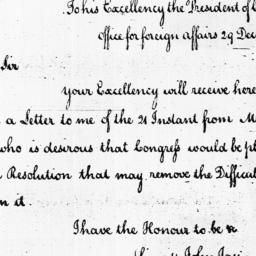 To his Excellency the President of
Office for foreign Affairs 29 Dec
Sir
Your Excellency will receive here
a Letter to me of the 21 Instant from M
who is desirous that Congress would be pl
Resolution that may remove the Difficul
it
I have the Honour to be &
John Jay